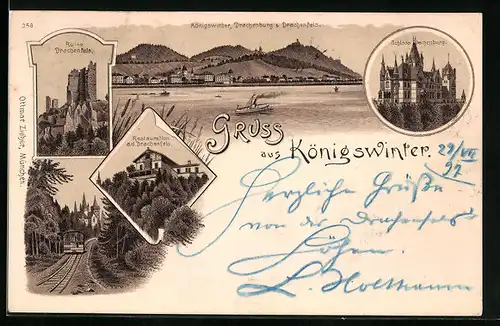 358
Königswinter, Drachenburg u. Drachenfels.
Ruine
Drachenfels.
Schloss Drachenburg.
Restauration
a.d. Drachenfels.
Ottmar Zieher, München.
Gruss
aus Königswinter.
29/VII
97
Herzliche Grüße
von der Drachenfels's
Höhen.
L. Holthaum